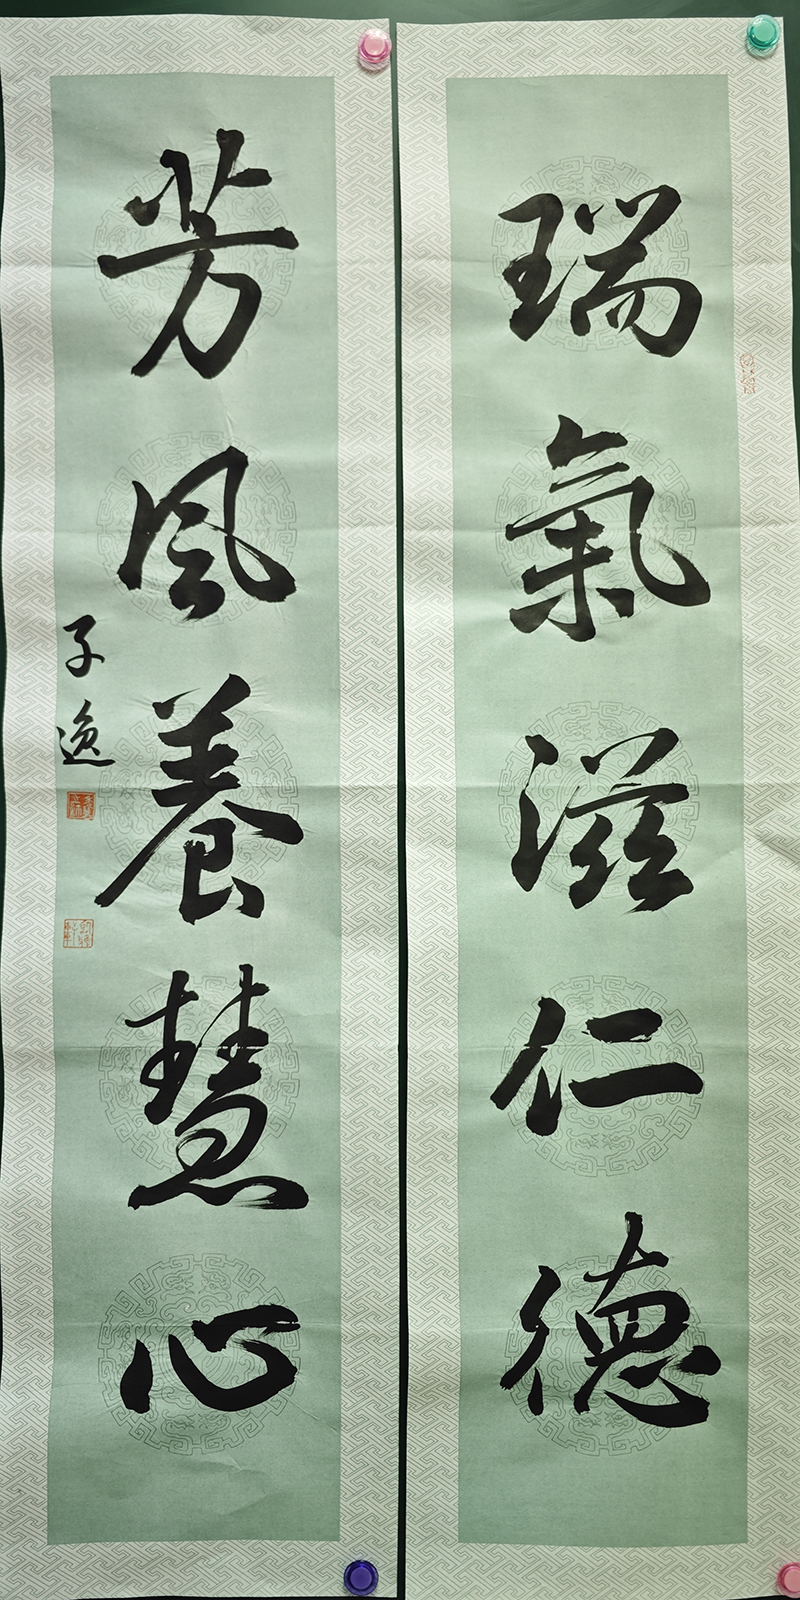 瑞氣滋仁德
芳風養慧心
子逸